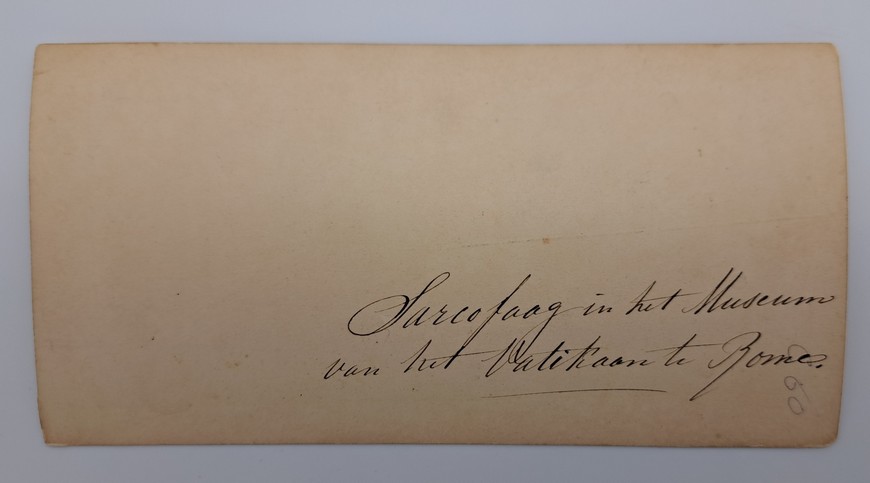 Sarcofaag in het Museum
van het Vatikaan te Rome.